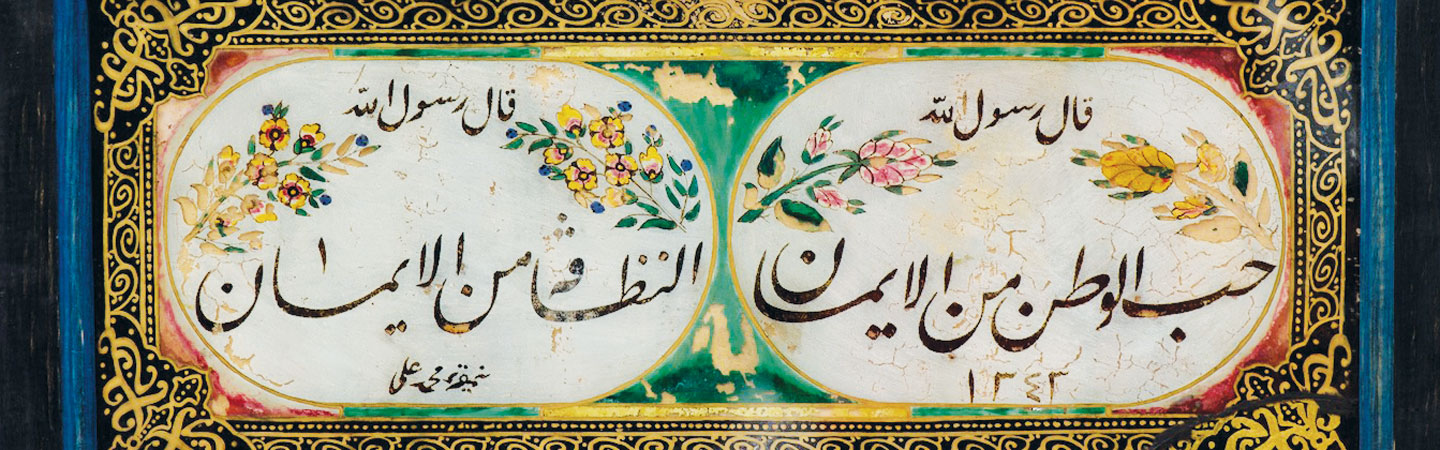 قال رسول الله
حب الوطن من الايمان
١٣٤٣
قال رسول الله
النظافة من الايمان
محمد علی